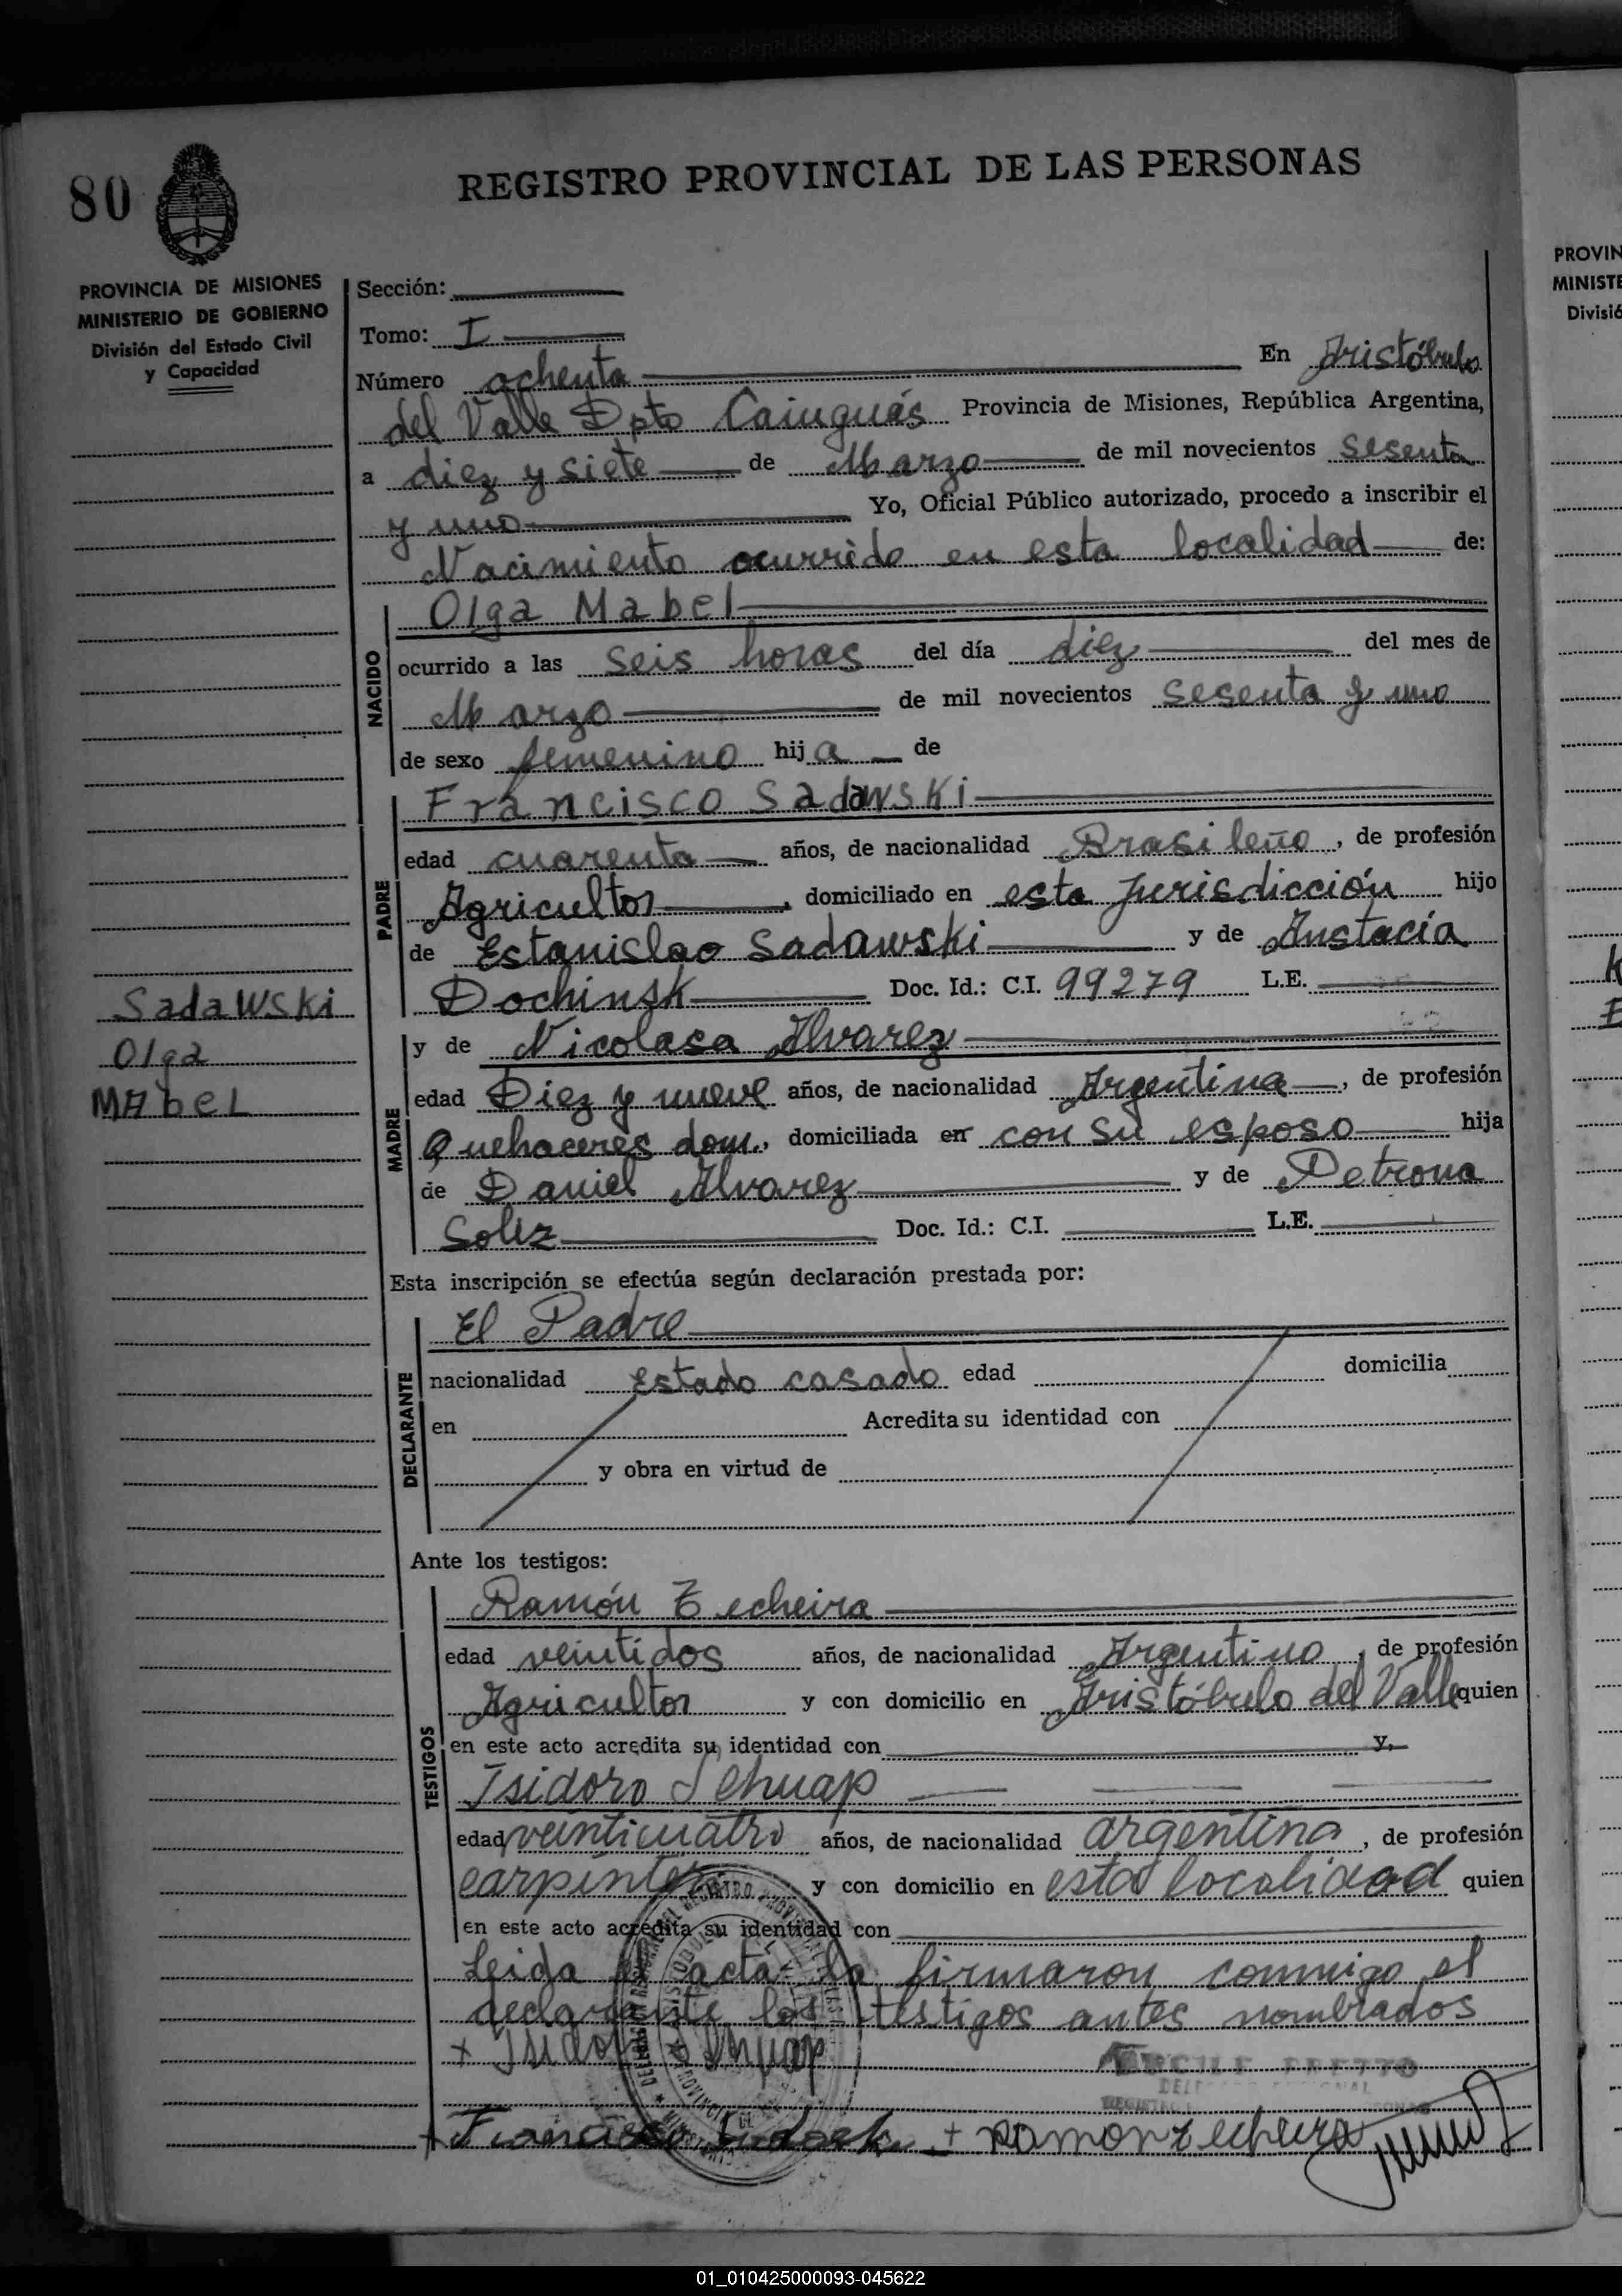 80
REGISTRO PROVINCIAL DE LAS PERSONAS
PROVINCIA DE MISIONES
MINISTERIO DE GOBIERNO
División del Estado Civil
y Capacidad
Sección:
Tomo: I
Número ochenta En Aristóbulo
del Valle Dpto Cainguás Provincia de Misiones, República Argentina,
a diez y siete de Marzo de mil novecientos sesenta
y uno Yo, Oficial Público autorizado, procedo a inscribir el
Nacimiento ocurrido en esta localidad de:
NACIDO
Olga Mabel
ocurrido a las seis horas del día diez del mes de
Marzo de mil novecientos sesenta y uno
de sexo femenino hija de
PADRE
Francisco Sadawski
edad cuarenta años, de nacionalidad Brasileño, de profesión
Agricultor, domiciliado en esta Jurisdicción hijo
de Estanislao Sadawski y de Anstacia
Dochinsk Doc. Id.: C.I. 99279 L.E.
Sadawski
Olga
MAbel
MADRE
y de Nicolasa Alvarez
edad Diez y nueve años, de nacionalidad Argentina, de profesión
Quehaceres dom., domiciliada en con su esposo hija
de Daniel Alvarez y de Petrona
Soliz Doc. Id.: C.I. L.E.
Esta inscripción se efectúa según declaración prestada por:
DECLARANTE
El Padre
nacionalidad Estado casado edad domicilia
en Acredita su identidad con
y obra en virtud de
Ante los testigos:
TESTIGOS
Ramón Techeira
edad veintidos años, de nacionalidad Argentino, de profesión
Agricultor y con domicilio en Aristóbulo del Valle quien
en este acto acredita su identidad con y,
Isidoro Schuap
edad veinticuatro años, de nacionalidad argentina, de profesión
carpintero y con domicilio en esta localidad quien
en este acto acredita su identidad con
Leida el acta la firmaron conmigo el
declarante los testigos antes nombrados
+ Isidoro Schuap
+ Francisco + Ramon Techeira
PROVIN
MINISTE
Divisió
01_010425000093-045622